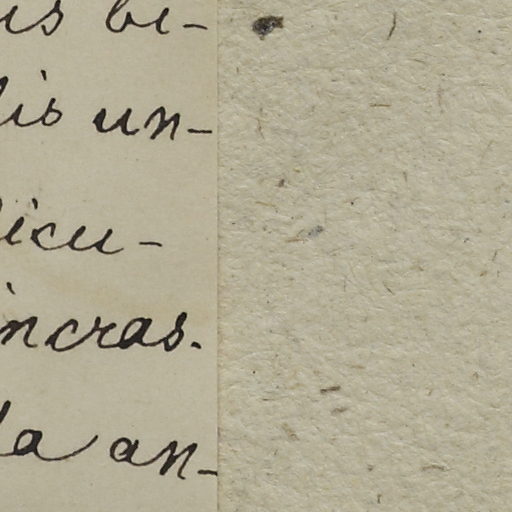 is bi-
lis un-
icu-
incras.
la an-